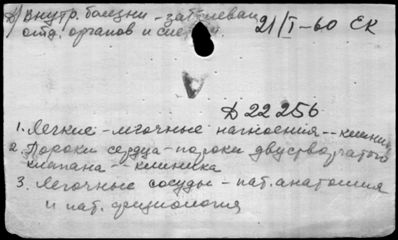 Д) Внутр. болезни - заболеван. 21/I-60 ЕК
отд. органов и систем.
Д 22256
1. Легкие - легочные нагноения -- клиника
2. Пороки сердца - пороки двустворчатого
клапана -- клиника
3. Легочные сосуды - пат. анатомия
и пат. физиология